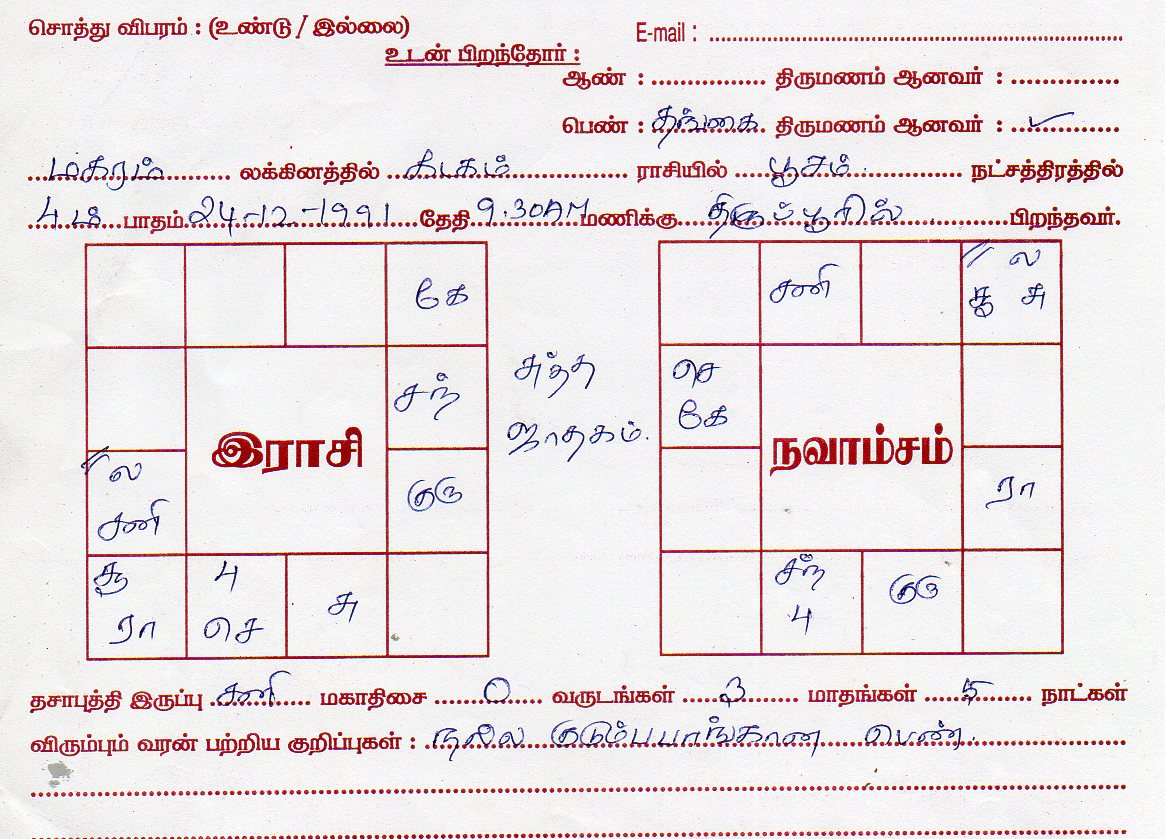 சொத்து விபரம் : (உண்டு / இல்லை)
E-mail : ..............................
உடன் பிறந்தோர் :
ஆண் : ............... திருமணம் ஆனவர் : ...............
பெண் : தங்கை திருமணம் ஆனவர் : ✓
மகரம் லக்கினத்தில் கடகம் ராசியில் பூசம் நட்சத்திரத்தில்
4ம் பாதம் 24-12-1991 தேதி 9.30AM மணிக்கு திருப்பூரில் பிறந்தவர்.
கே
சந்
// ல
சனி
குரு
சூ
ரா
பு
செ
சு
இராசி
சுத்த
ஜாதகம்.
சனி
// ல
சூ சு
செ
கே
ரா
சந்
பு
குரு
நவாம்சம்
தசாபுத்தி இருப்பு சனி மகாதிசை 0 வருடங்கள் 3 மாதங்கள் 5 நாட்கள்
விரும்பும் வரன் பற்றிய குறிப்புகள் : நல்ல குடும்பபாங்கான பெண்.